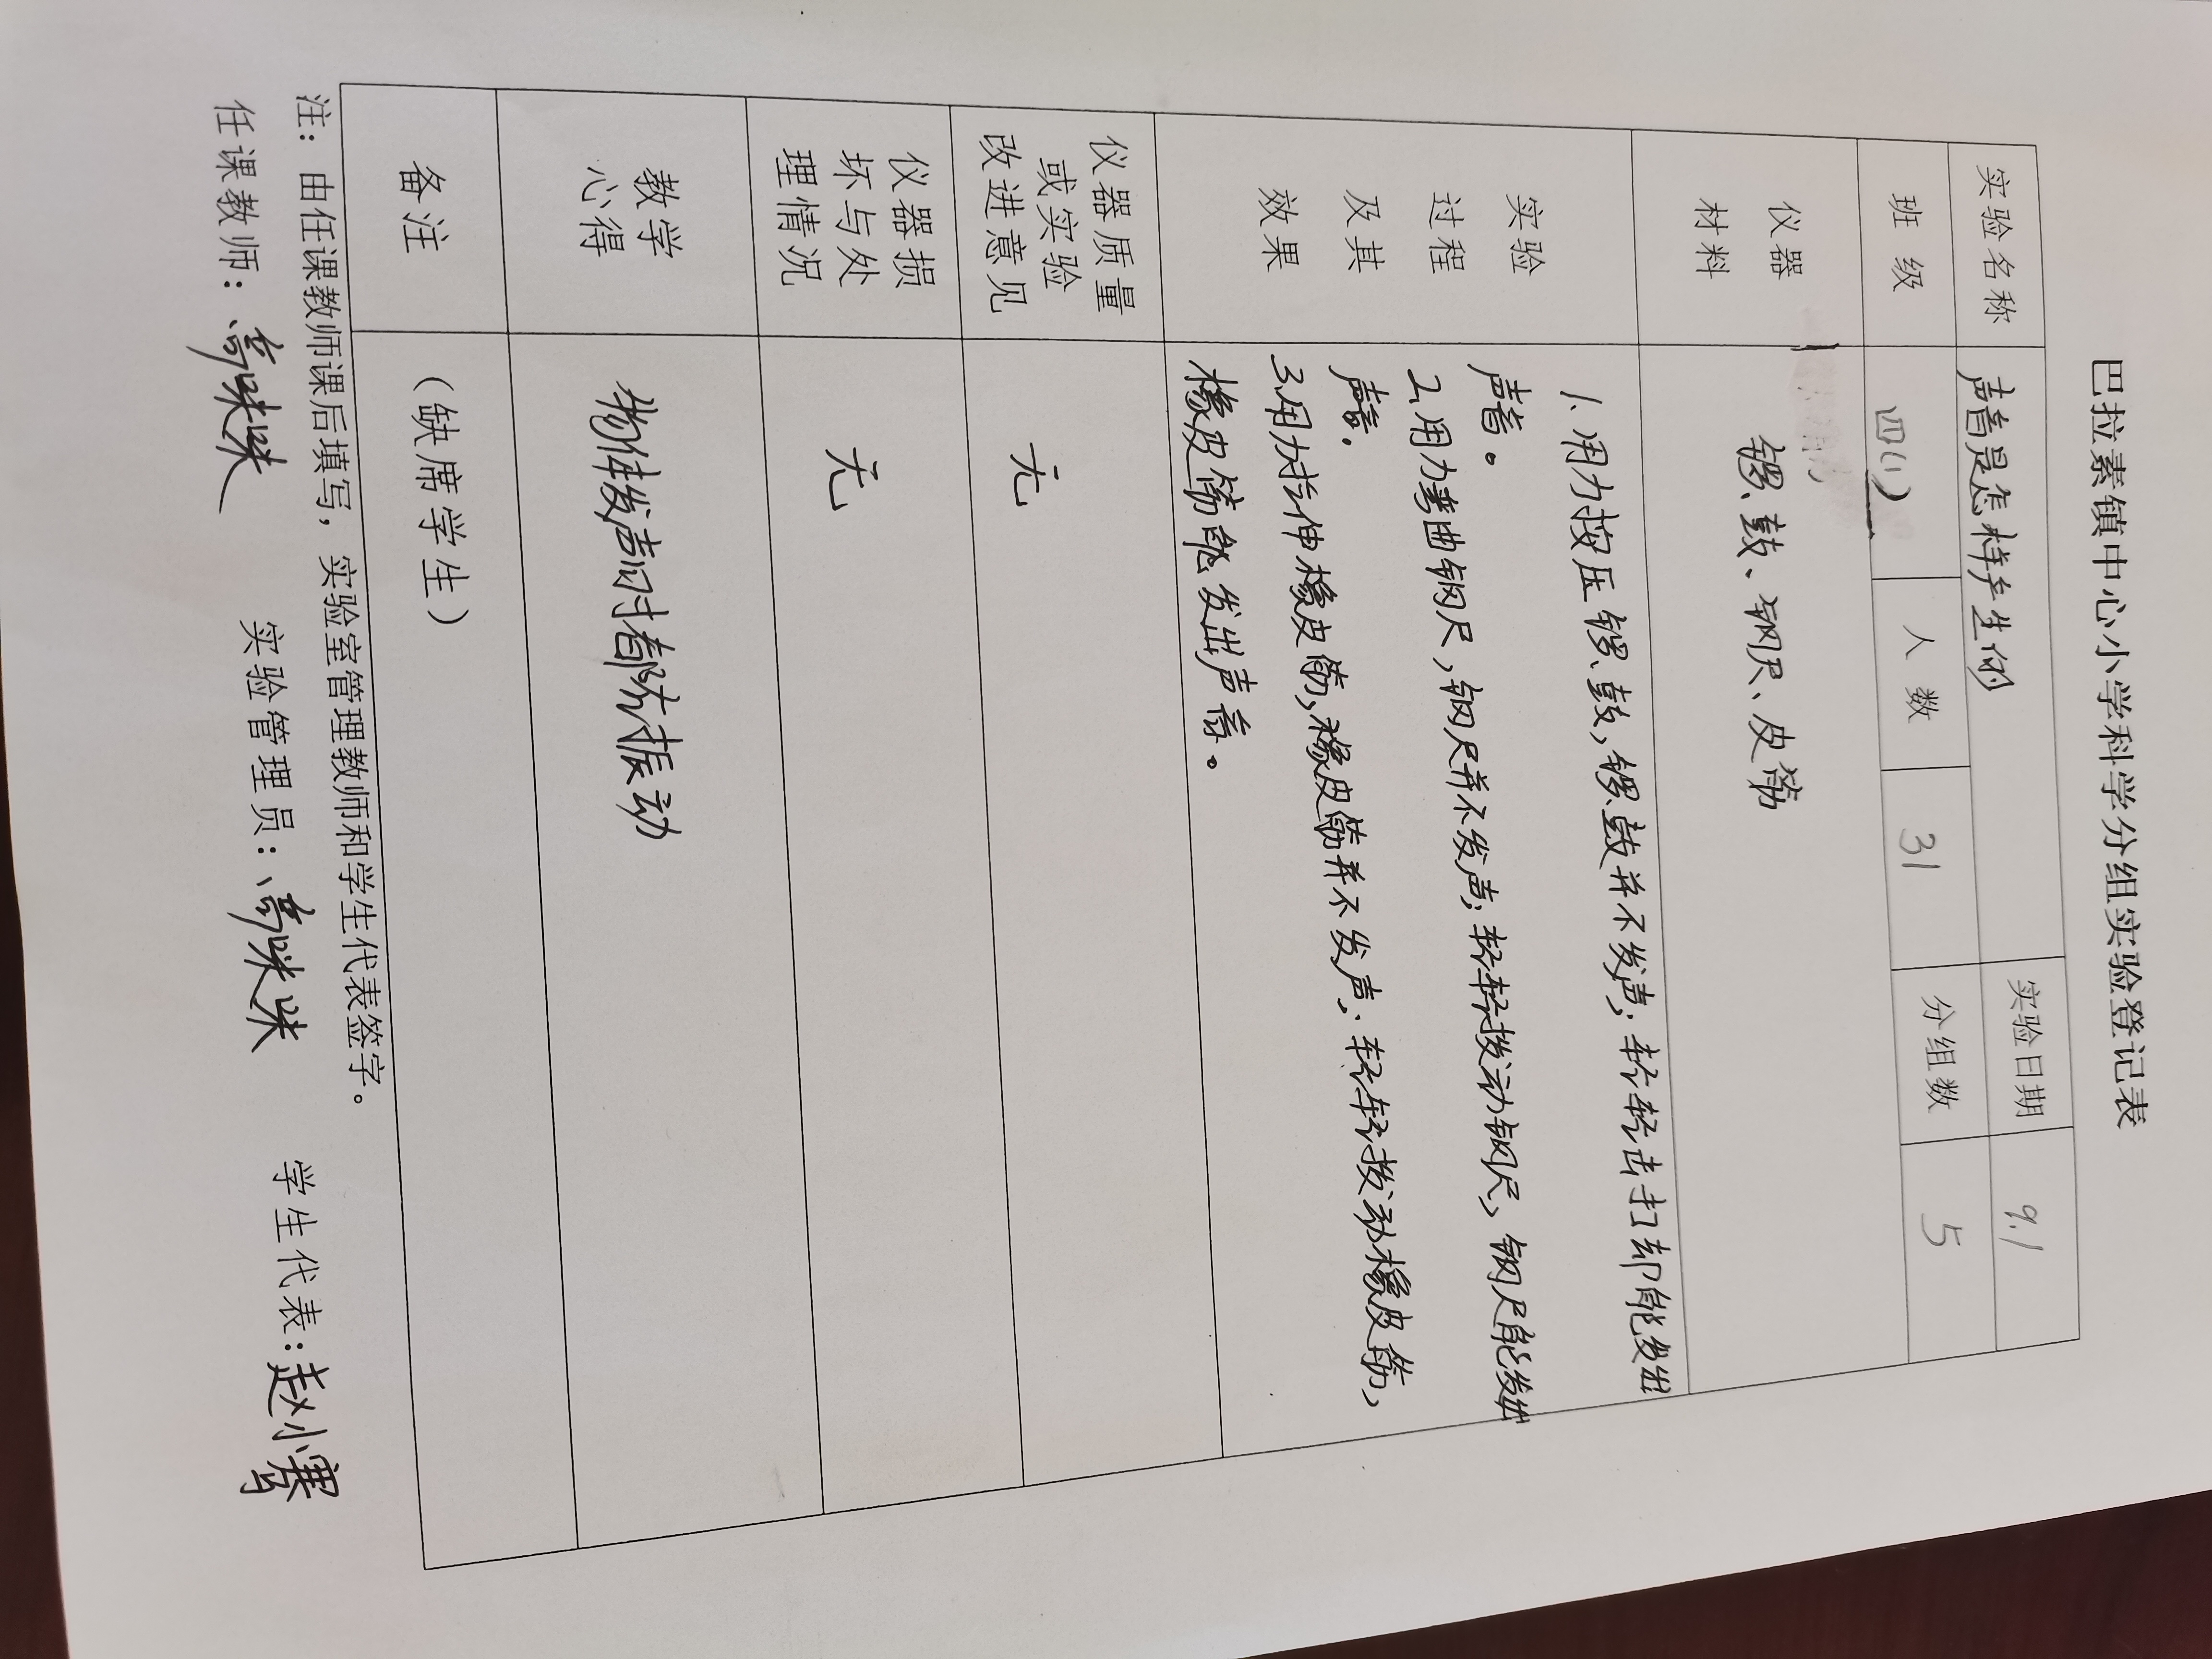 巴拉素镇中心小学科学分组实验登记表
实验名称 声音是怎样产生的 实验日期 9.1
班 级 四(1) 人 数 31 分组数 5
仪器
材料
锣、鼓、钢尺、皮筋
实验
过程
及其
效果
1、用力按压锣、鼓,锣、鼓并不发声;轻轻击打却能发出
声音。
2、用力弯曲钢尺,钢尺并不发声;轻轻拨动钢尺,钢尺能发出
声音。
3、用力拉伸橡皮筋,橡皮筋并不发声;轻轻拨动橡皮筋,
橡皮筋能发出声音。
仪器质量
或实验
改进意见
无
仪器损
坏与处
理情况
无
教学
心得
物体发声时都在振动
备注 (缺席学生)
注:由任课教师课后填写,实验室管理教师和学生代表签字。
任课教师: 实验管理员: 学生代表:赵小骞